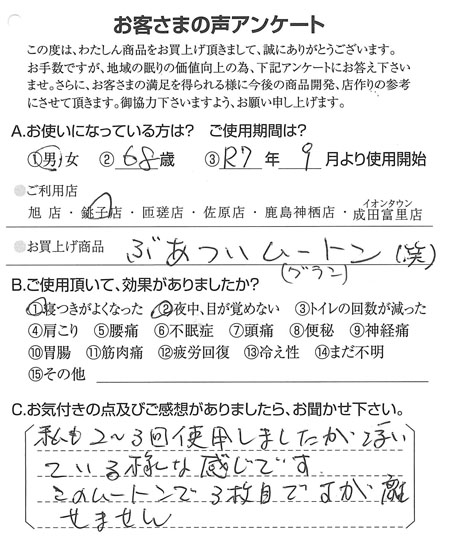 お客さまの声アンケート
この度は、わたしん商品をお買上げ頂きまして、誠にありがとうございます。
お手数ですが、地域の眠りの価値向上の為、下記アンケートにお答え下さい
ませ。さらに、お客さまの満足を得られる様に今後の商品開発、店作りの参考
にさせて頂きます。御協力下さいますよう、お願い申し上げます。
A.お使いになっている方は? ご使用期間は?
①男女 ②68歳 ③R7年9月より使用開始
ご利用店
旭店・銚子店・匝瑳店・佐原店・鹿島神栖店・イオンタウン成田富里店
お買上げ商品 ぶあついムートン(笑)
(グラン)
B.ご使用頂いて、効果がありましたか?
①寝つきがよくなった ②夜中、目が覚めない ③トイレの回数が減った
④肩こり ⑤腰痛 ⑥不眠症 ⑦頭痛 ⑧便秘 ⑨神経痛
⑩胃腸 ⑪筋肉痛 ⑫疲労回復 ⑬冷え性 ⑭まだ不明
⑮その他
C.お気付きの点及びご感想がありましたら、お聞かせ下さい。
私も2~3回使用しましたが浮い
ている様な感じです
このムートンで3枚目ですが離
せません